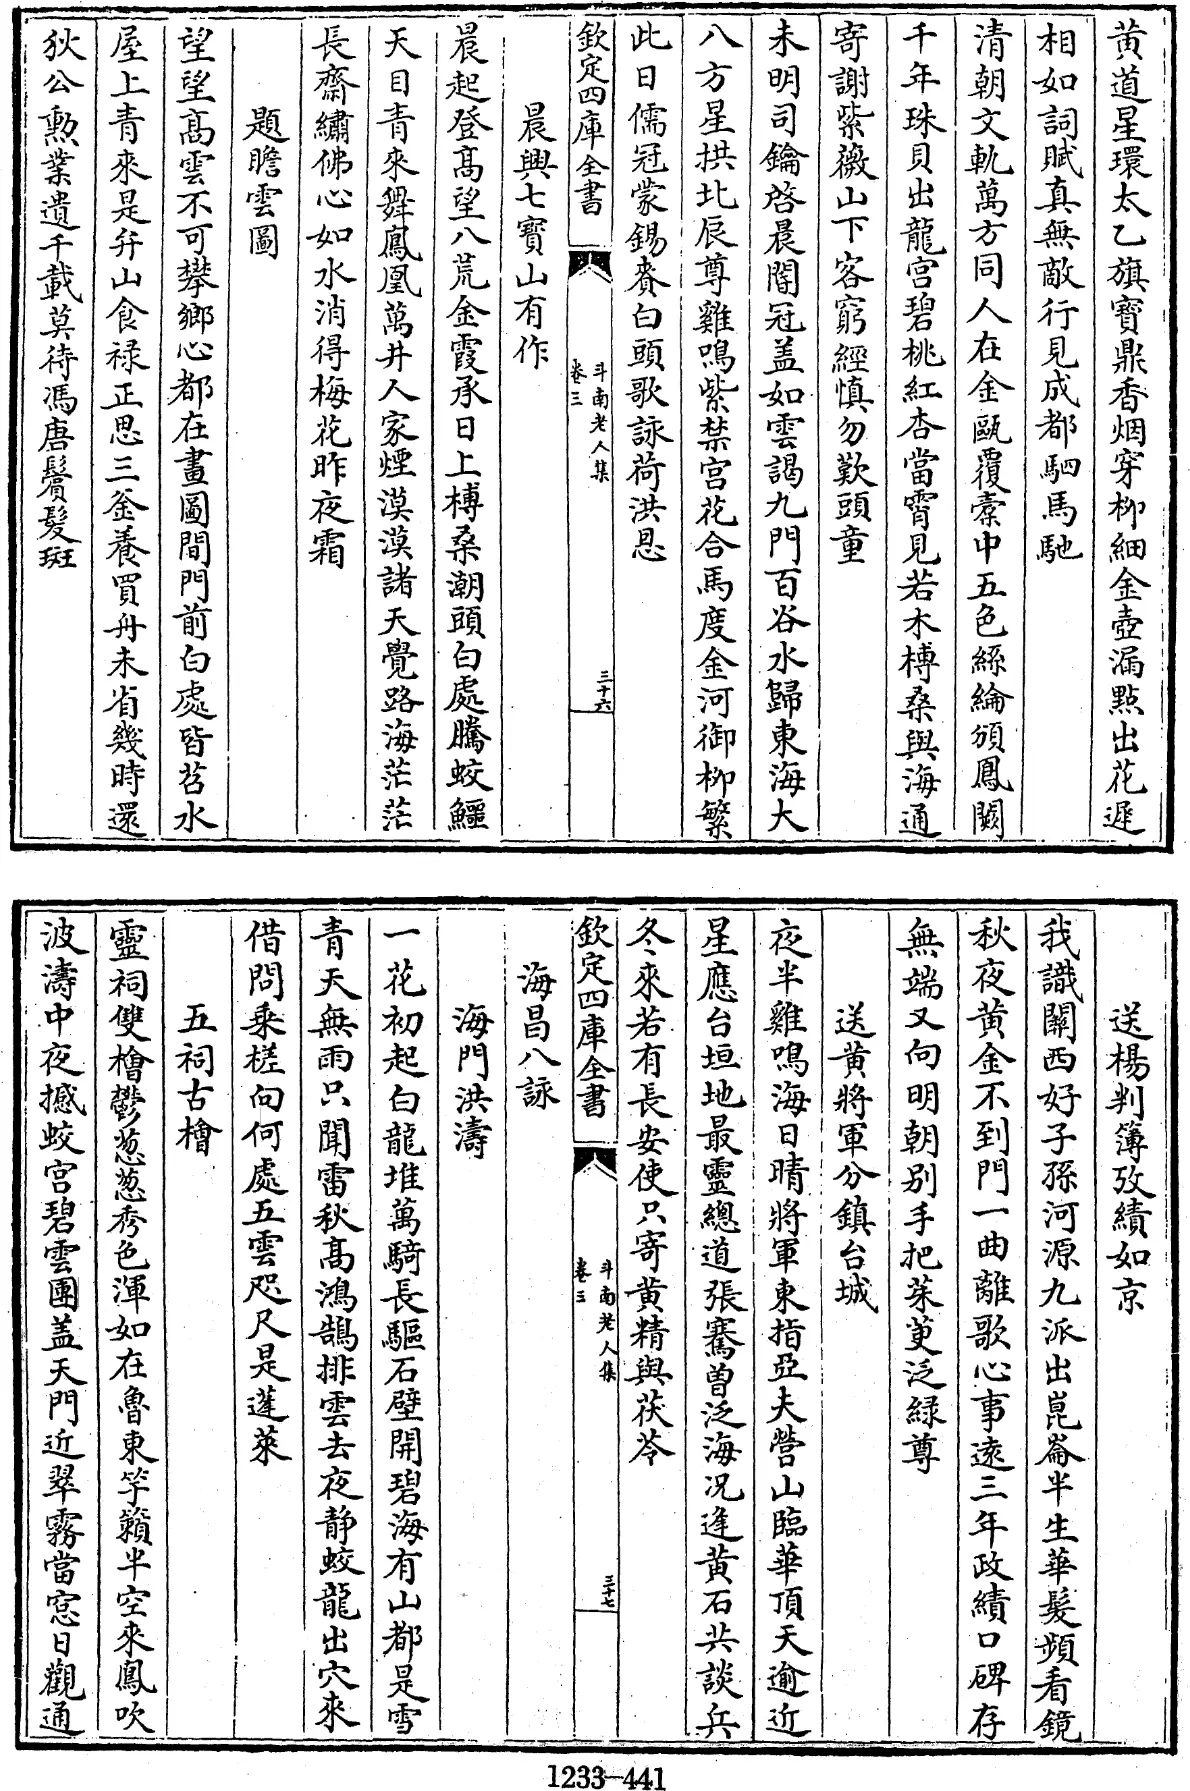 黄道星環太乙旗寶鼎香烟穿栁細金壺漏㸃出花遲
相如詞賦真無敵行見成都駟馬馳
清朝文軌萬方同人在金甌覆橐中五色絲綸頒鳳闕
千年珠貝出龍宫碧桃紅杏當霄見若木榑桑與海通
寄謝紫薇山下客窮經慎勿歎頭童
未明司鑰啓晨閽冠盖如雲謁九門百谷水歸東海大
八方星拱北辰尊雞鳴紫禁宫花合馬度金河御栁繁
此日儒冠蒙錫賚白頭歌詠荷洪恩
欽定四庫全書
斗南老人集
卷三
三十六
晨興七寳山有作
晨起登髙望八荒金霞承日上榑桑潮頭白處騰蛟鱷
天目青來舞鳳凰萬井人家煙漠漠諸天覺路海茫茫
長齋繡佛心如水消得梅花昨夜霜
題瞻雲圖
望望髙雲不可攀鄉心都在畫圖間門前白處皆苕水
屋上青來是弁山食禄正思三釡養買舟未省幾時還
狄公勲業遺千載莫待馮唐鬢髮斑
送楊判簿攷績如京
我識關西好子孫河源九派出崑崙半生華髮頻看鏡
秋夜黄金不到門一曲離歌心事逺三年政績口碑存
無端又向明朝别手把茱萸泛緑尊
送黄將軍分鎮台城
夜半雞鳴海日晴將軍東指亞夫營山臨華頂天逾近
星應台垣地最靈總道張騫曽泛海况逢黄石共談兵
冬來若有長安使只寄黄精與茯苓
欽定四庫全書
斗南老人集
卷三
三十七
海昌八詠
海門洪濤
一花初起白龍堆萬騎長驅石壁開碧海有山都是雪
青天無雨只聞雷秋髙鴻鵠排雲去夜静蛟龍出穴來
借問乗槎向何處五雲咫尺是蓬萊
五祠古檜
靈祠雙檜鬱葱葱秀色渾如在魯東竽籟半空來鳳吹
波濤中夜撼蛟宫碧雲團盖天門近翠霧當窓日觀通
1233-441